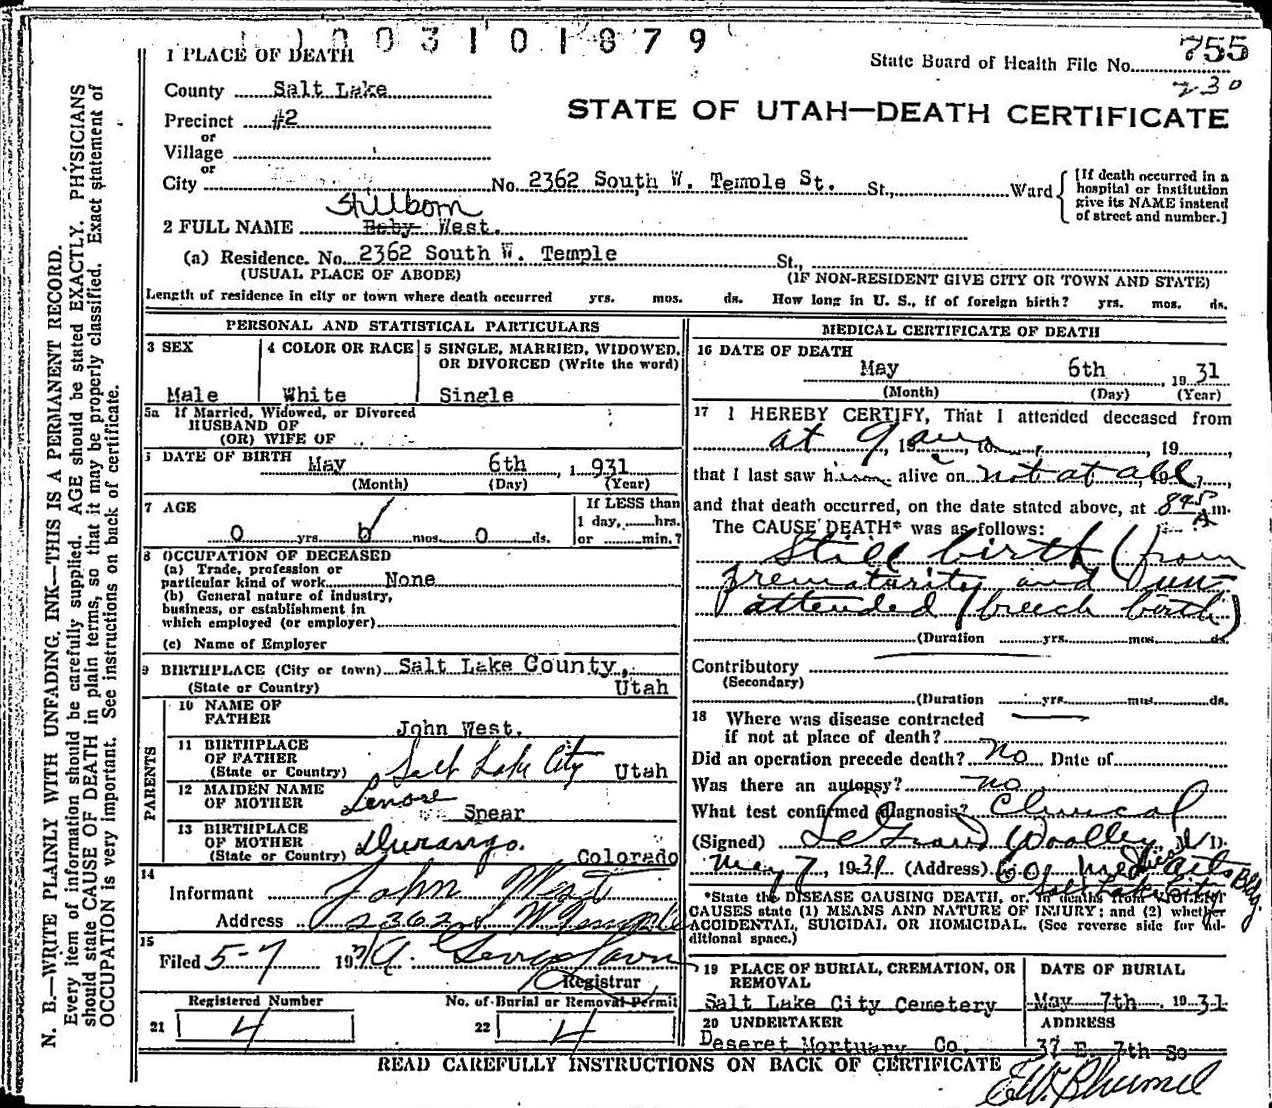 1003101879
755
State Board of Health File No.
230
1 PLACE OF DEATH
County Salt Lake
STATE OF UTAH—DEATH CERTIFICATE
Precinct #2
or
Village
or
City No. 2362 South W. Temple St. St., Ward
[If death occurred in a hospital or institution give its NAME instead of street and number.]
Stillborn
2 FULL NAME Baby West.
(a) Residence. No. 2362 South W. Temple St.,
(USUAL PLACE OF ABODE) (IF NON-RESIDENT GIVE CITY OR TOWN AND STATE)
Length of residence in city or town where death occurred yrs. mos. ds. How long in U. S., if of foreign birth? yrs. mos. ds.
PERSONAL AND STATISTICAL PARTICULARS
3 SEX 4 COLOR OR RACE 5 SINGLE, MARRIED, WIDOWED,
OR DIVORCED (Write the word)
Male White Single
5a If Married, Widowed, or Divorced
HUSBAND OF
(OR) WIFE OF
DATE OF BIRTH May 6th, 1931
(Month) (Day) (Year)
7 AGE If LESS than
1 day, hrs.
0 yrs. mos. 0 ds. or min.?
8 OCCUPATION OF DECEASED
(a) Trade, profession or
particular kind of work None
(b) General nature of industry,
business, or establishment in
which employed (or employer)
(c) Name of Employer
9 BIRTHPLACE (City or town) Salt Lake County,
(State or Country) Utah
PARENTS
10 NAME OF
FATHER John West.
11 BIRTHPLACE
OF FATHER
(State or Country) Salt Lake City Utah
12 MAIDEN NAME
OF MOTHER Lenore Spear
13 BIRTHPLACE
OF MOTHER Durango.
(State or Country) Colorado
14
Informant John West
Address 2362 W Temple
15
Filed 5-7 193 A.
Registrar
Registered Number No. of Burial or Removal Permit
21 4 22 4
MEDICAL CERTIFICATE OF DEATH
16 DATE OF DEATH
May 6th, 1931
(Month) (Day) (Year)
17 I HEREBY CERTIFY, That I attended deceased from
at 9 am, 19 to, 19
that I last saw him alive on not at all, 19,
and that death occurred, on the date stated above, at 845 A m.
The CAUSE DEATH* was as follows:
Still birth (from
prematurity and un-
attended (breech birth)
(Duration yrs. mos. ds.
Contributory
(Secondary)
(Duration yrs. mos. ds.
18 Where was disease contracted
if not at place of death?
Did an operation precede death? No Date of
Was there an autopsy? no
What test confirmed diagnosis? Clinical
(Signed) LeGrand Woolley M.D.
May 7, 1931 (Address) 601 Medical Arts Bldg.
Salt Lake City
*State the DISEASE CAUSING DEATH, or, in deaths from VIOLENT
CAUSES state (1) MEANS AND NATURE OF INJURY; and (2) whether
ACCIDENTAL, SUICIDAL OR HOMICIDAL. (See reverse side for ad-
ditional space.)
19 PLACE OF BURIAL, CREMATION, OR
REMOVAL
Salt Lake City Cemetery
DATE OF BURIAL
May 7th 1931
20 UNDERTAKER
Deseret Mortuary Co.
ADDRESS
37 E. 7th So
READ CAREFULLY INSTRUCTIONS ON BACK OF CERTIFICATE
N. B.—WRITE PLAINLY WITH UNFADING INK—THIS IS A PERMANENT RECORD.
Every item of information should be carefully supplied. AGE should be stated EXACTLY. PHYSICIANS
should state CAUSE OF DEATH in plain terms, so that it may be properly classified. Exact statement of
OCCUPATION is very important. See instructions on back of certificate.